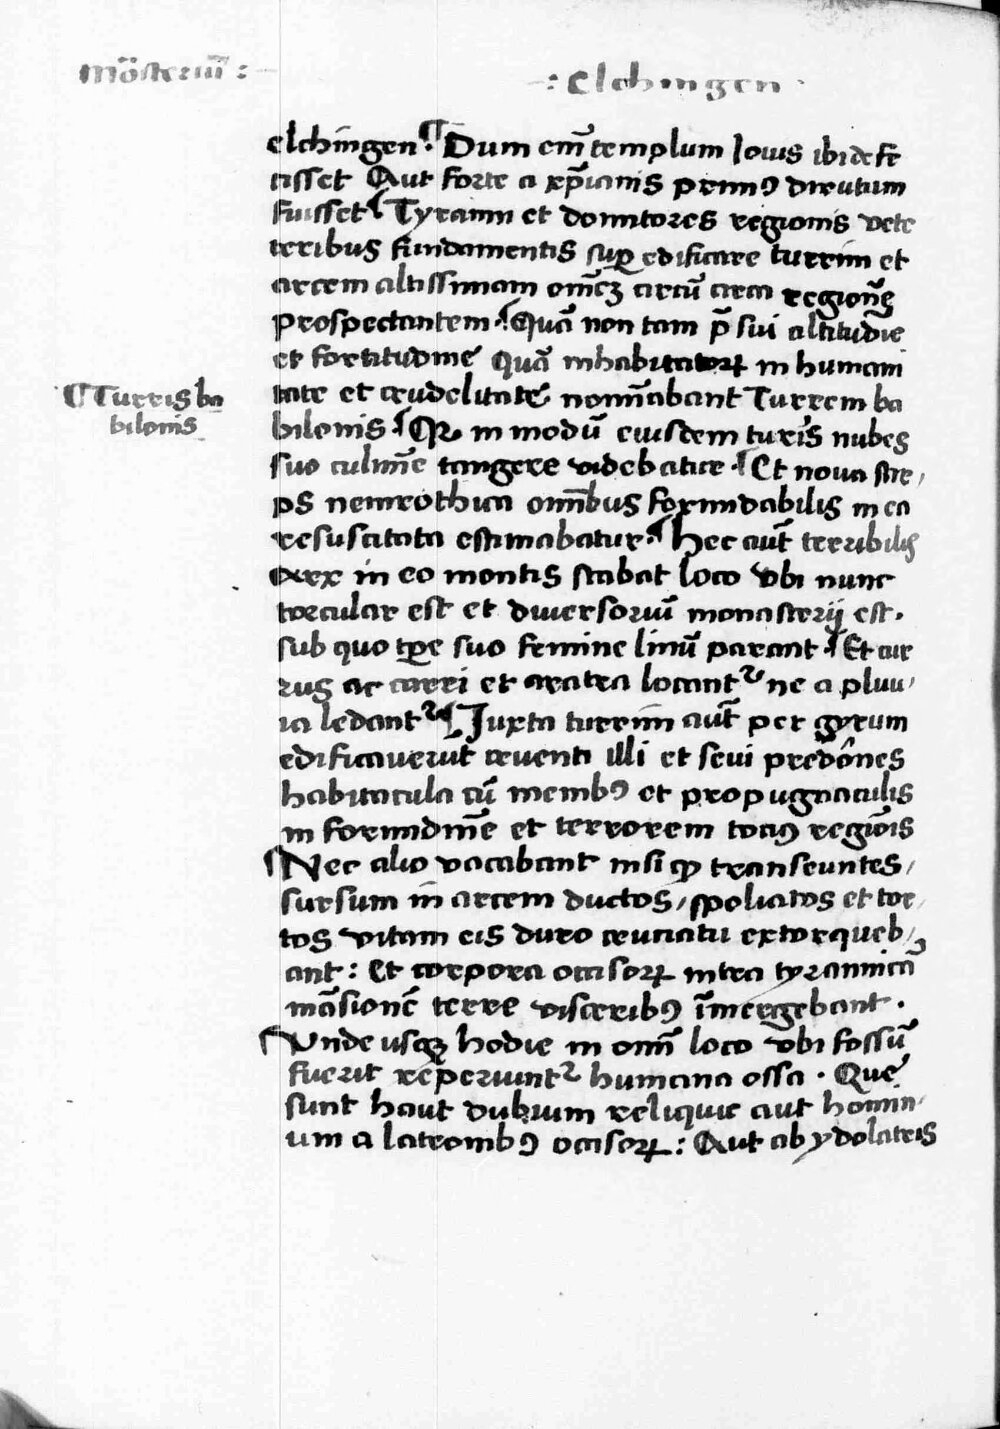 Mōsteriū :
: Elchingen
elchingen. ¶ Dum em̄ templum Iouis ibi defe
cisset Aut forte a xp̄ianis penit9 dirutum
fuisset ¶ Tyranni et domitores regionis vete
teribus fundamentis sup̲ edificare turrim et
arcem altissimam om̄eꝫ circū circa regionē
prospectantem. ¶ Quā non tam p̄ sui altitudīe
et fortitudine quā inhabitatoꝝ in humani
tate et crudelitate nomīabant Turrem ba
bilonis. ¶ in modū eiusdem turris nubes
suo culmīe tangere videbatur. ¶ Et noua stre,
ps nemrothica omībus formidabilis in ea
resuscitata estimabatur. ¶ Hec aūt terribilis
Arx in eo montis stabat loco vbi nunc
torcular est et diuersoriū monasterij est.
sub quo tp̲e suo femine linū parant. ¶ Et cur
rus ac carri et aratra locant᷑ ne a pluu,
ia ledant᷑ ¶ Iuxta turrim aūt per gyrum
edificauerūt cruenti illi et seui predōnes
habitacula cū menib9 et propugnaculis
in formidinē et terrorem toci9 regiōis
¶ Nec alio vacabant nisi ꝙ transeuntes,
sursum in arcem ductos, spoliatos et tor,
tos vitam eis duro cruciatu extorqueb,
ant: Et corpora occisoꝝ intra tyrannicā
māsionē terre visceribꝰ īmergebant.
¶ Vnde usqꝫ hodie in omī loco vbi fossū
fuerit reperiunt᷑ humana ossa. Que
sunt haut dubium reliquie aut homin,
um a latronibꝰ occisoꝝ: Aut ab ydolatris
¶ Turris ba
bilonis